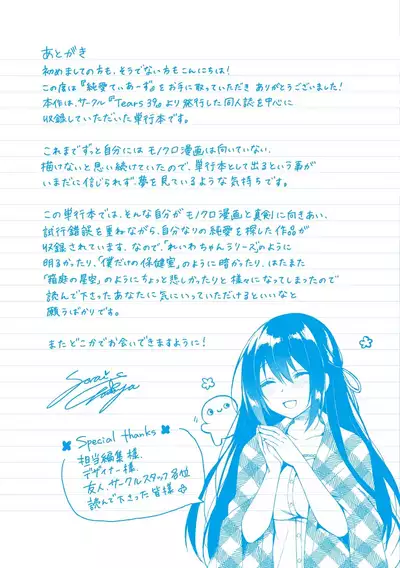 あとがき
初めましての方も、そうでない方もこんにちは!
この度は『純愛てぃあーず』をお手に取っていただき ありがとうございました!
本作は、サークル『Tears39』より発行した同人誌を中心に
収録していただいた単行本です。
これまでずっと自分には モノクロ漫画は向いていない、
描けないと思い続けていたので、単行本として出るという事が
いまだに信じられず、夢を見ているような気持ちです。
この単行本では、そんな自分がモノクロ漫画と真剣に向きあい、
試行錯誤を重ねながら、自分なりの純愛を探した作品が
収録されています。なので、「れいわちゃんシリーズ」のように
明るかったり、「僕だけの保健室」のように暗かったり、はたまた
「箱庭の星空」のようにちょっと悲しかったりと様々になってしまったので
読んで下さったあなたに気にいっていただけるといいなと
願うばかりです。
またどこかでお会いできますように!
Special thanks
担当編集様、
デザイナー様、
友人、サークルスタッフ各位
読んで下さった皆様